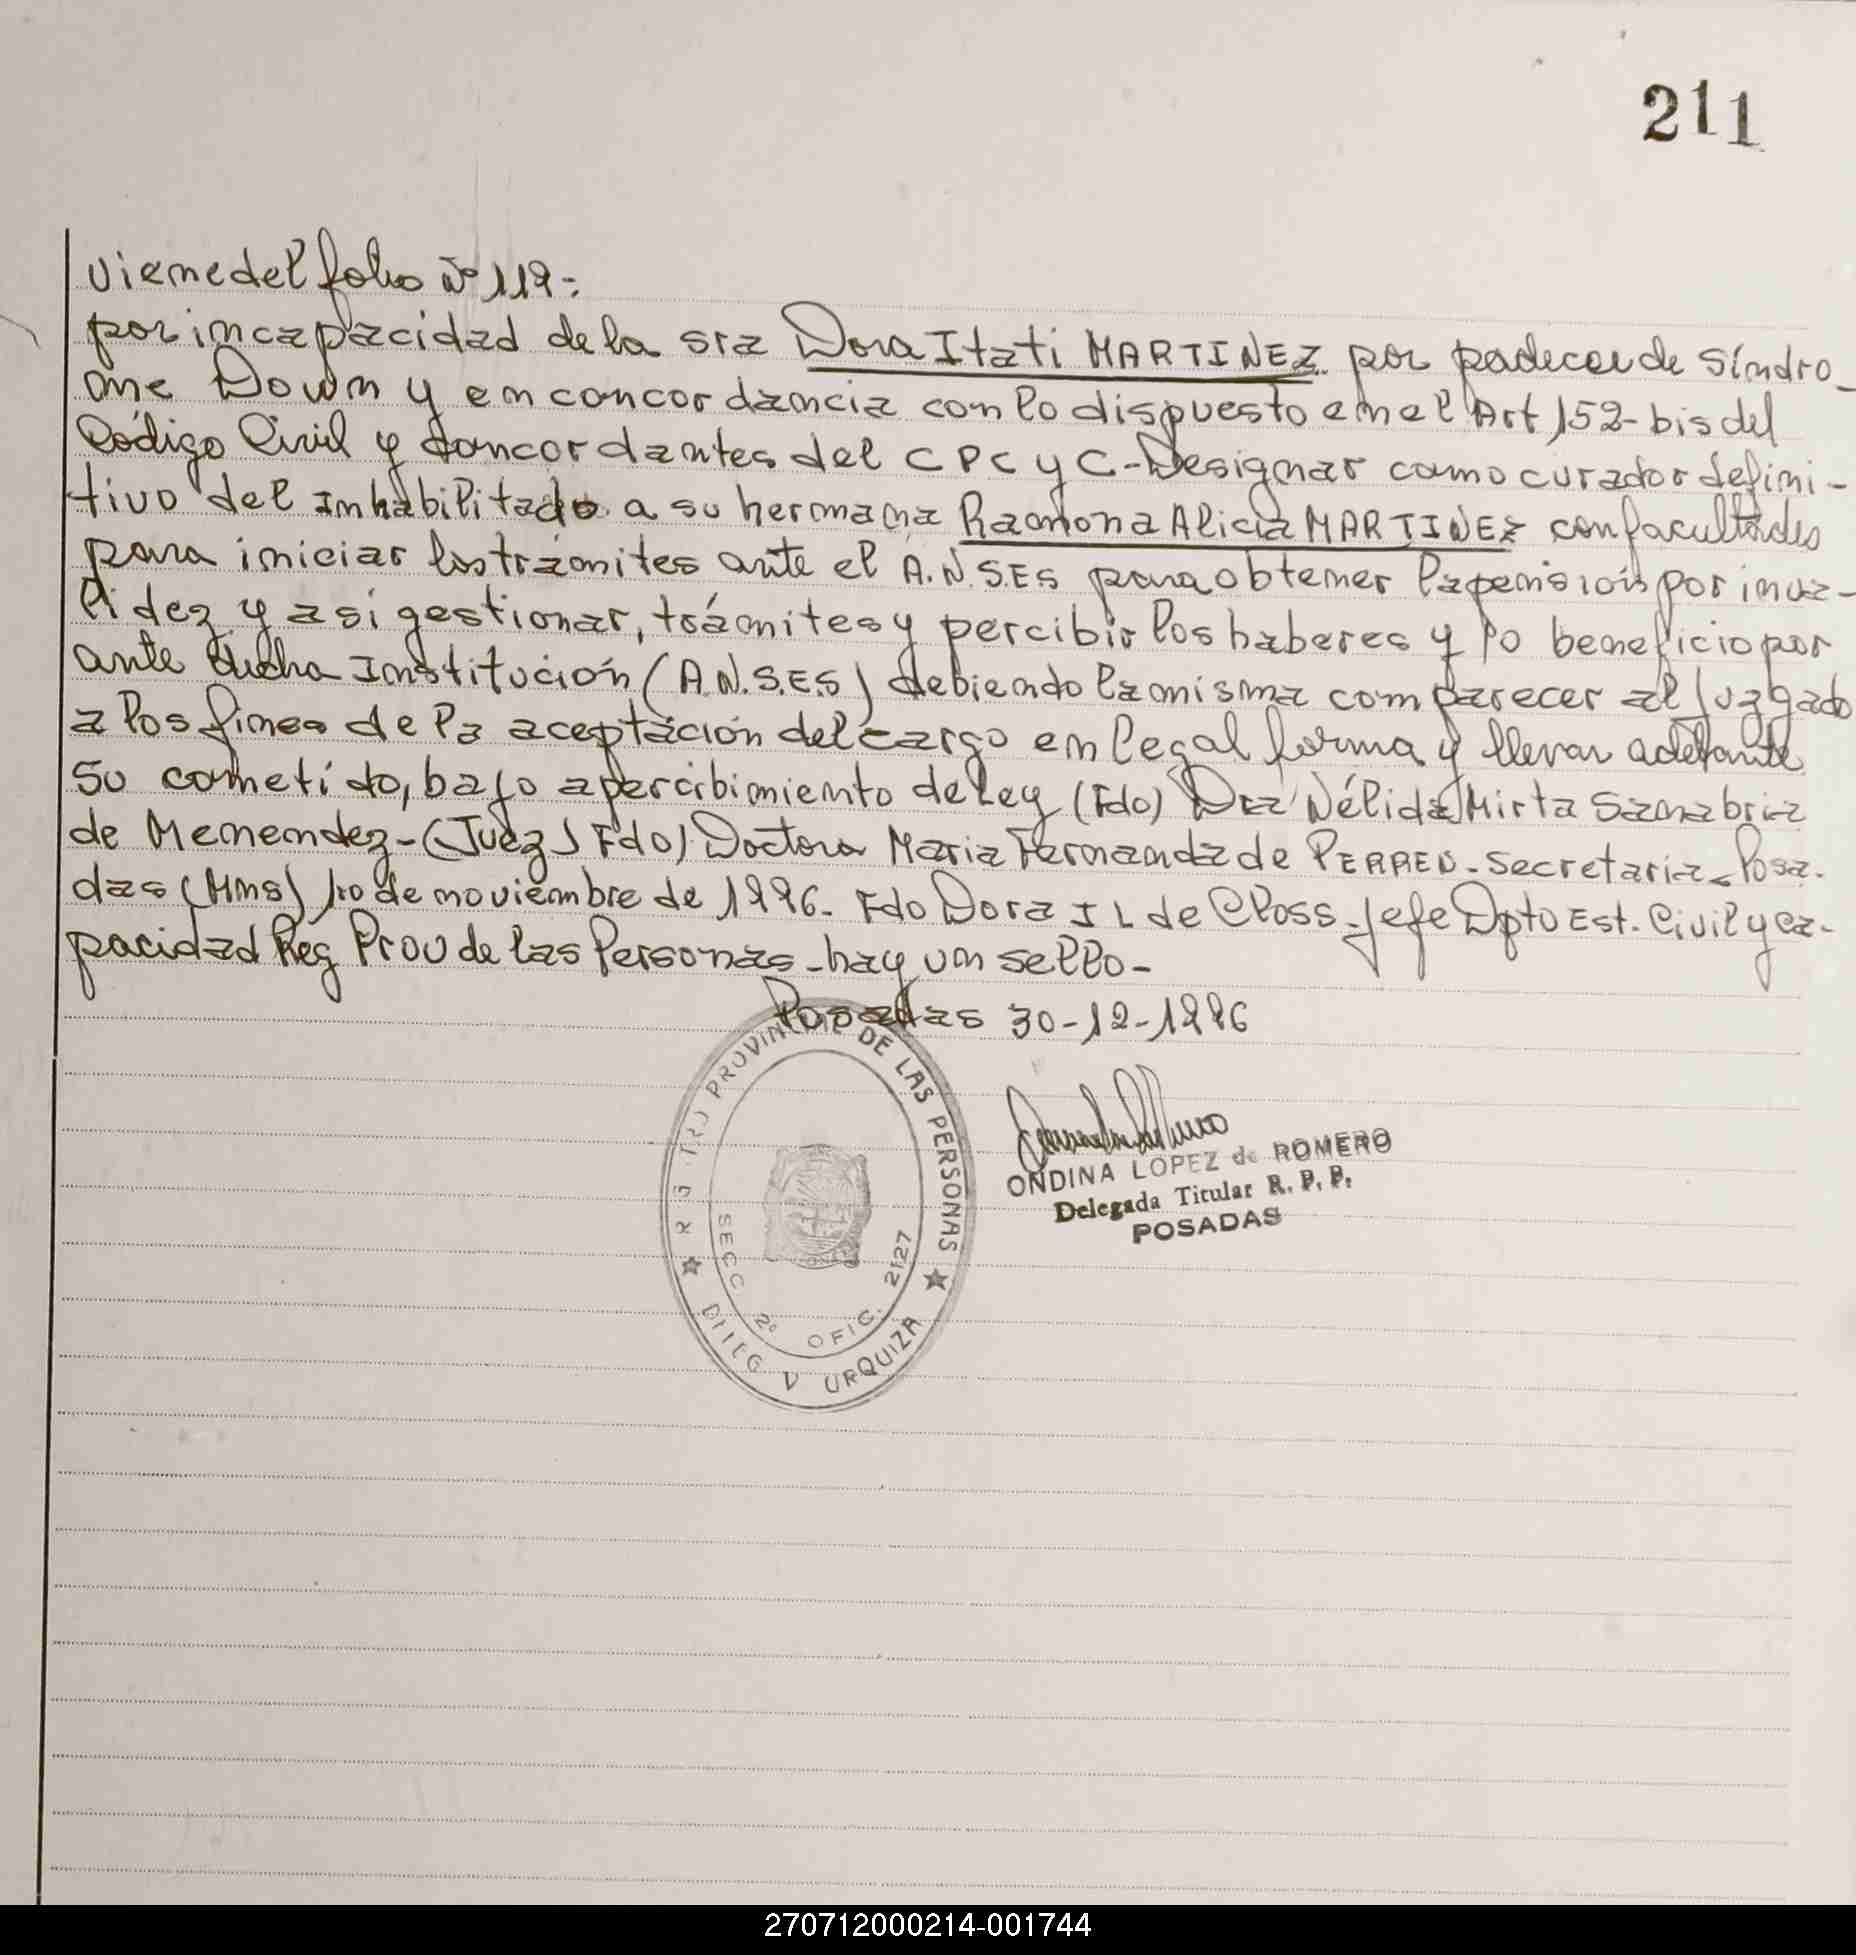 211
viene del folio Nº 119-
por incapacidad de la sra Dora Itati MARTINEZ por padecer de Síndro-
me Down y en concordancia con lo dispuesto en el Art 152-bis del
Código Civil y concordantes del CPC y C-Designar como curador defini-
tivo del Inhabilitado a su hermana Ramona Alicia MARTINEZ con facultades
para iniciar los trámites ante el A.N.S.ES para obtener la pensión por inva-
lidez y así gestionar, trámites y percibir los haberes y /o beneficio por
ante dicha Institución (A.N.S.E.S) debiendo la misma comparecer al Juzgado
a los fines de la aceptación del cargo en legal forma y llevar adelante
su cometido, bajo apercibimiento de Ley (Fdo) Dra Nélida Mirta Sanabria
de Menendez-(Juez) Fdo) Doctora Maria Fernanda de PERREN-Secretaria-Posa-
das (Mns) 10 de noviembre de 1996- Fdo Dora I L de Closs-Jefe Dpto Est. Civil y ca-
pacidad Reg Prov de las Personas-hay un sello-
Posadas 30-12-1996
PROVINCIAL DE LAS PERSONAS
SECC 2º OFIC. 2127
URQUIZA
ONDINA LOPEZ de ROMERO
Delegada Titular R. P. P.
POSADAS
270712000214-001744